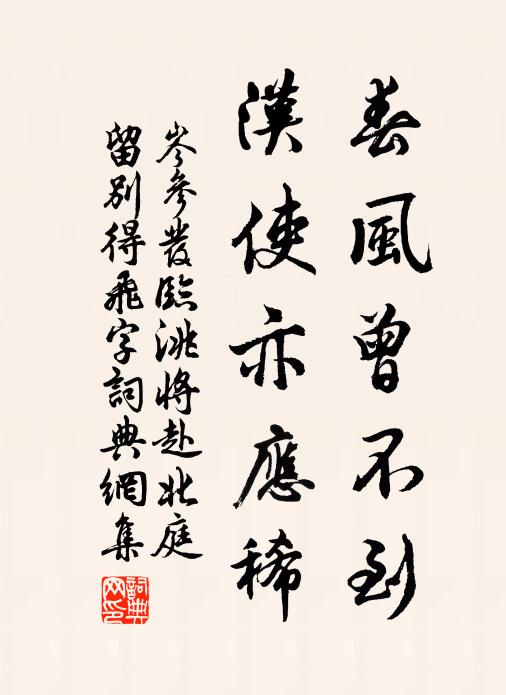 春風曾不到
漢使亦應稀
岑參發臨洮將赴北庭
留別得飛字詞典網集
詞典網印